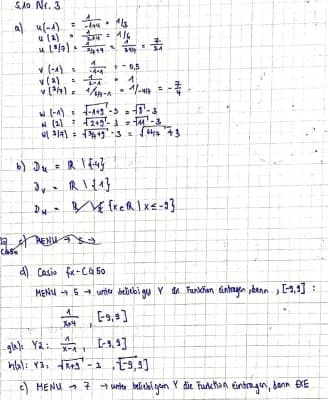 S.10 Nr. 3
a) u(-1) = 1/(-1+4) = 1/3
u(2) = 1/(2+4) = 1/6
u(3/7) = 1/(3/7+4) = 1/(31/7) = 7/31
v(-1) = 1/(-1-1) = -0,5
v(2) = 1/(2-1) = 1
v(3/7) = 1/(3/7-1) = 1/(-4/7) = -7/4
w(-1) = √(-1+9) - 3 = √8 - 3
w(2) = √(2+9) - 3 = √11 - 3
w(3/7) = √(3/7+9) - 3 = √(66/7) - 3
b) Du = ℝ \ {-4}
Dv = ℝ \ {1}
Dw = ℝ \ {x∈ℝ | x≤-9}
c) MENU → 5 →
CG50
d) Casio fx-CG50
MENU → 5 → unter beliebiges Y die Funktion eintragen, dann , [-9,9] :
1/(x+4) , [-9,9]
g(x): Y2: 1/(x-1) , [-9,9]
h(x): Y3: √(x+9) - 3 , [-9,9]
c) MENU → 7 → unter beliebigem Y die Funktion eintragen, dann EXE